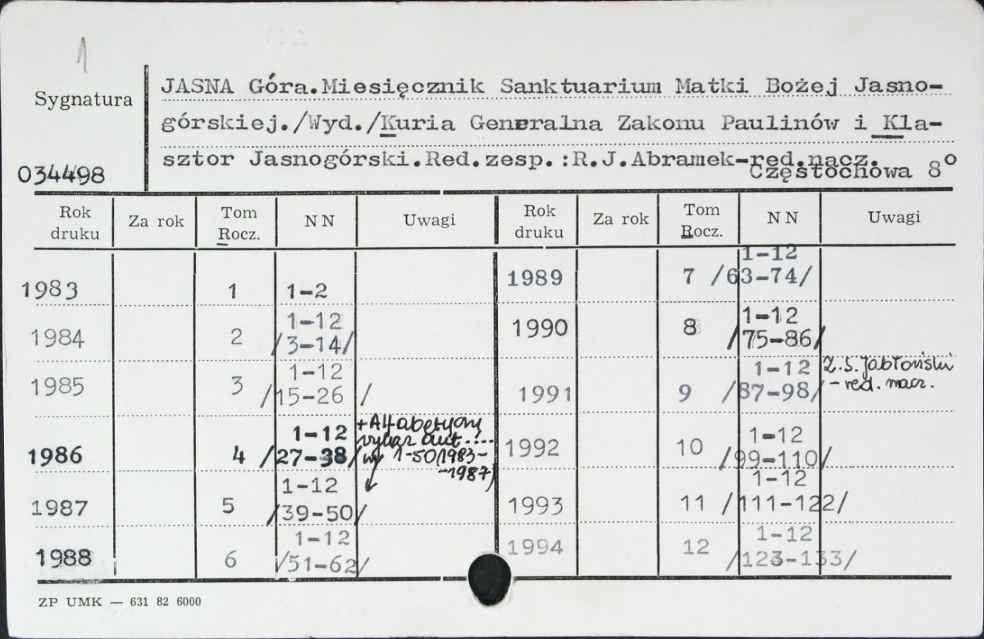 1
Sygnatura
034498
JASNA Góra.Miesięcznik Sanktuarium Matki Bożej Jasno-
górskiej./Wyd./Kuria Generalna Zakonu Paulinów i Kla-
sztor Jasnogórski.Red.zesp.:R.J.Abramek-red.nacz.
Częstochowa 8°
Rok druku Za rok Tom Rocz. NN Uwagi Rok druku Za rok Tom Rocz. NN Uwagi
1983 1 1-2
1984 2 1-12 /3-14/
1985 3 1-12 /15-26 /
1986 4 1-12 /27-38/ +Alfabetyczny wykaz aut. ... w 1-50/1983-1987/
1987 5 1-12 /39-50/
1988 6 1-12 /51-62/
1989 7 1-12 /63-74/
1990 8 1-12 /75-86/
1991 9 1-12 /87-98/ Z.S.Jabłoński - red. nacz.
1992 10 1-12 /99-110/
1993 11 1-12 /111-122/
1994 12 1-12 /123-133/
ZP UMK — 631 82 6000